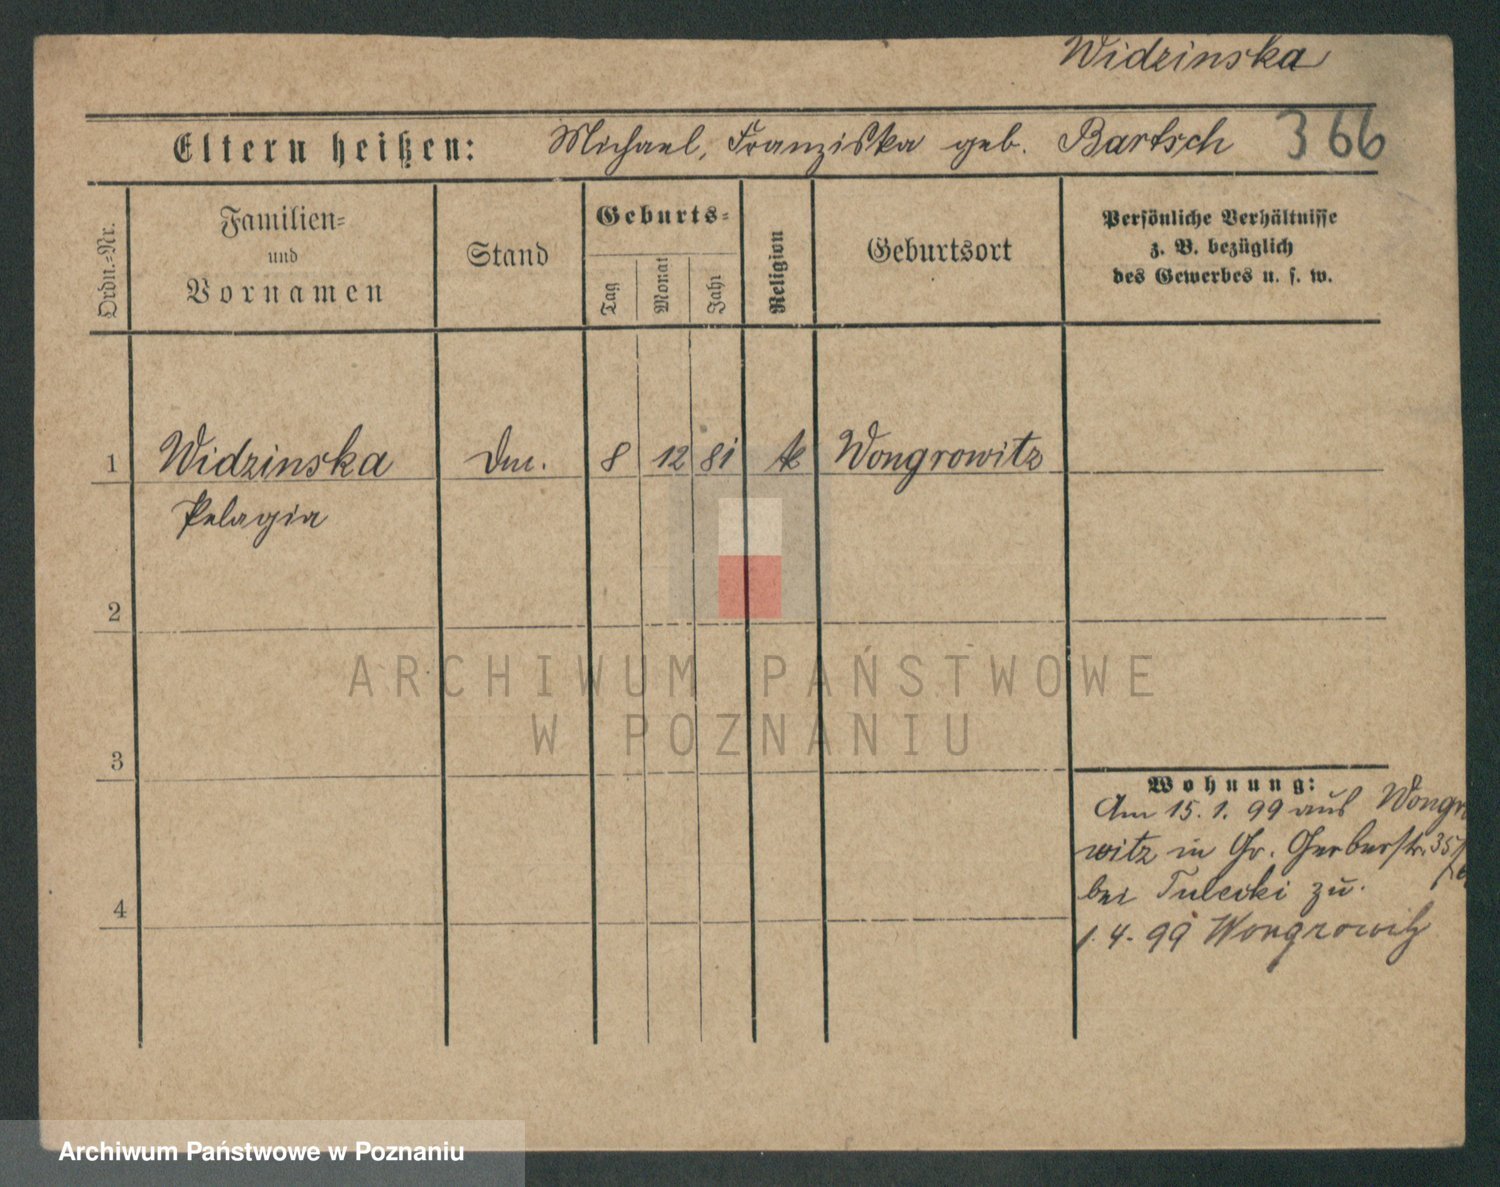 Widzinska
Eltern heißen: Michael, Franziska geb. Bartsch 366
Ordn.-Nr.
Familien-
und
Vornamen
Stand
Geburts-
Tag
Monat
Jahr
Religion
Geburtsort
Persönliche Verhältnisse
z. B. bezüglich
des Gewerbes u. s. w.
1 Widzinska 8 12 81 k Wongrowitz
Pelagia
2
3
4
ARCHIWUM PAŃSTWOWE
W POZNANIU
Wohnung:
Am 15.1.99 aus Wongro
witz in Gr. Gerberstr. 35
bei Tulecki zu.
1.4.99 Wongrowitz
Archiwum Państwowe w Poznaniu